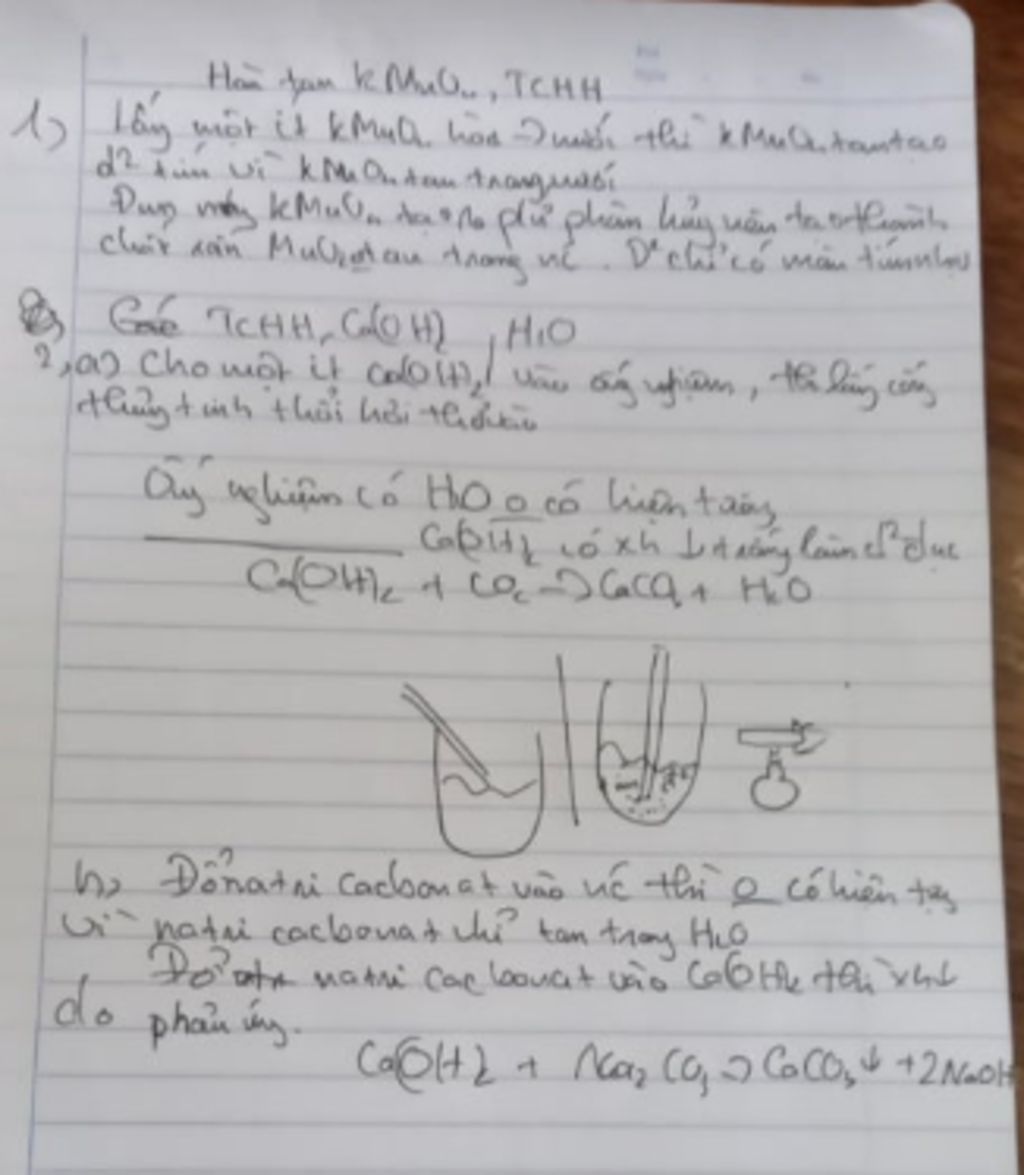 Hoà tan KMnO₄, TCHH
1) Lấy một ít KMnO₄ hòa → nước thì KMnO₄ tan tạo
d² tím vì KMnO₄ tan trong nước
Đun KMnO₄ phân hủy nên tạo thành
chất rắn MnO₂ tan trong nc. D² chỉ có màu tím nhạt
TCHH, Ca(OH)₂, H₂O
2, a) Cho một ít Ca(OH)₂ vào ống nghiệm, lấy ống
thủy tinh thổi hơi thở vào
Ống nghiệm có H₂O o có hiện tượng
Ca(OH)₂ có xh ↓ trắng làm d² đục
Ca(OH)₂ + CO₂ → CaCO₃ + H₂O
b, Đổ natri cacbonat vào nc thì o có hiện tg
vì natri cacbonat chỉ tan trong H₂O
Đổ natri cacbonat vào Ca(OH)₂ thì xh ↓
do phản ứng.
Ca(OH)₂ + Na₂CO₃ → CaCO₃↓ + 2NaOH